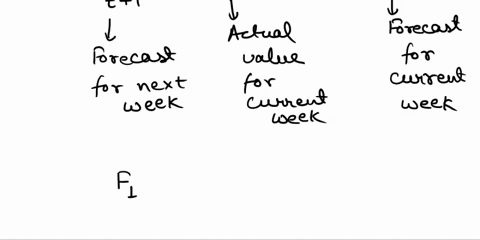 t+1
Forecast
for next
week
Actual
value
for
current
week
Forecast
for
current
week
F1